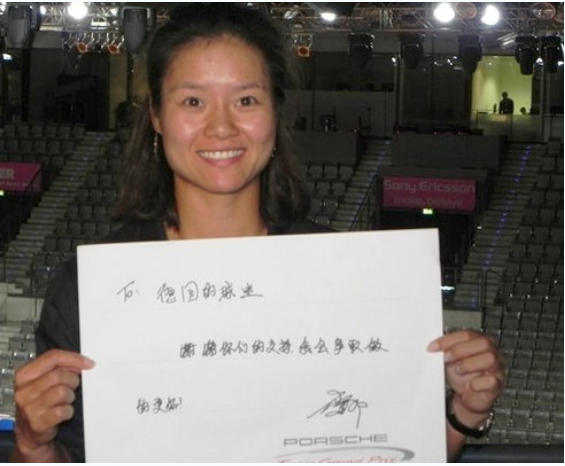 Sony Ericsson
make.believe
To: 德国的球迷
谢谢你们的支持 我会争取做
的更好!
PORSCHE
Tennis Grand Prix